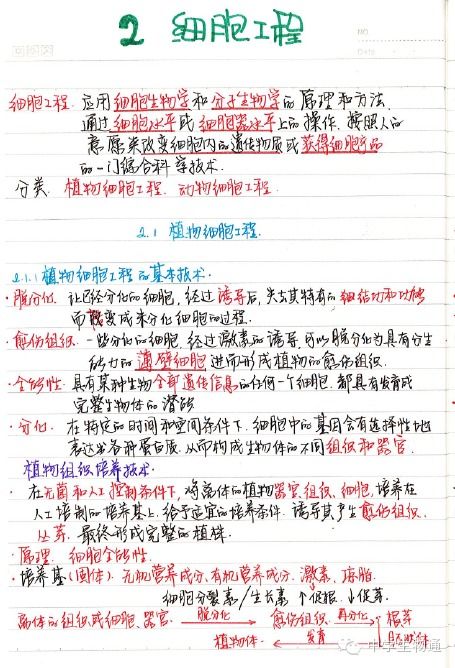 2 细胞工程
NO.
Date
细胞工程 应用细胞生物学和分子生物学的原理和方法
通过细胞水平或细胞器水平上的操作. 按照人的
意愿来改变细胞内的遗传物质或获得细胞产品
的一门综合科学技术.
分类. 植物细胞工程. 动物细胞工程.
2.1 植物细胞工程.
2.1.1 植物细胞工程的基本技术.
· 脱分化. 让已经分化的细胞, 经过诱导后, 失去其特有的细结功和功能
而转变成未分化细胞的过程.
· 愈伤组织. 一些分化的细胞, 经过激素的诱导, 可以脱分化为具有分生
能力的薄壁细胞 进而形成植物的愈伤组织.
· 全能性. 具有某种生物全部遗传信息的任何一个细胞. 都具有发育成
完整生物体的潜能
· 分化. 在特定的时间和空间条件下. 细胞中的基因会有选择性地
表达出各种蛋白质. 从而构成生物体的不同组织和器官.
植物组织培养技术.
· 在无菌和人工控制条件下, 将离体的植物器官. 组织. 细胞, 培养在
人工培制的培养基上. 给予适宜的培养条件. 诱导其产生愈伤组织.
丛芽. 最终形成完整的植株.
· 原理. 细胞全能性.
· 培养基(固体). 无机营养成分. 有机营养成分. 激素. 琼脂.
细胞分裂素/生长素 ↑促根. ↓促芽.
离体的组织或细胞、器官. 脱分化→ 愈伤组织. 再分化→ 根芽
植物体. ←发育 胚状体
中学生物通